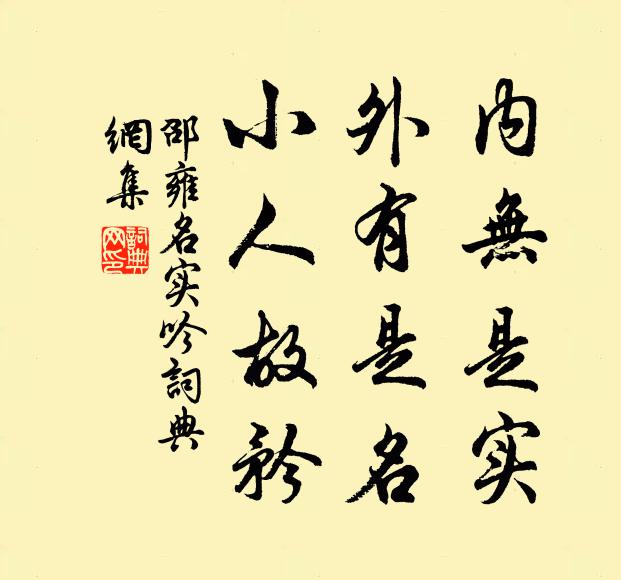 内無是实
外有是名
小人故矜
邵雍名实吟詞典
網集
詞典
网印